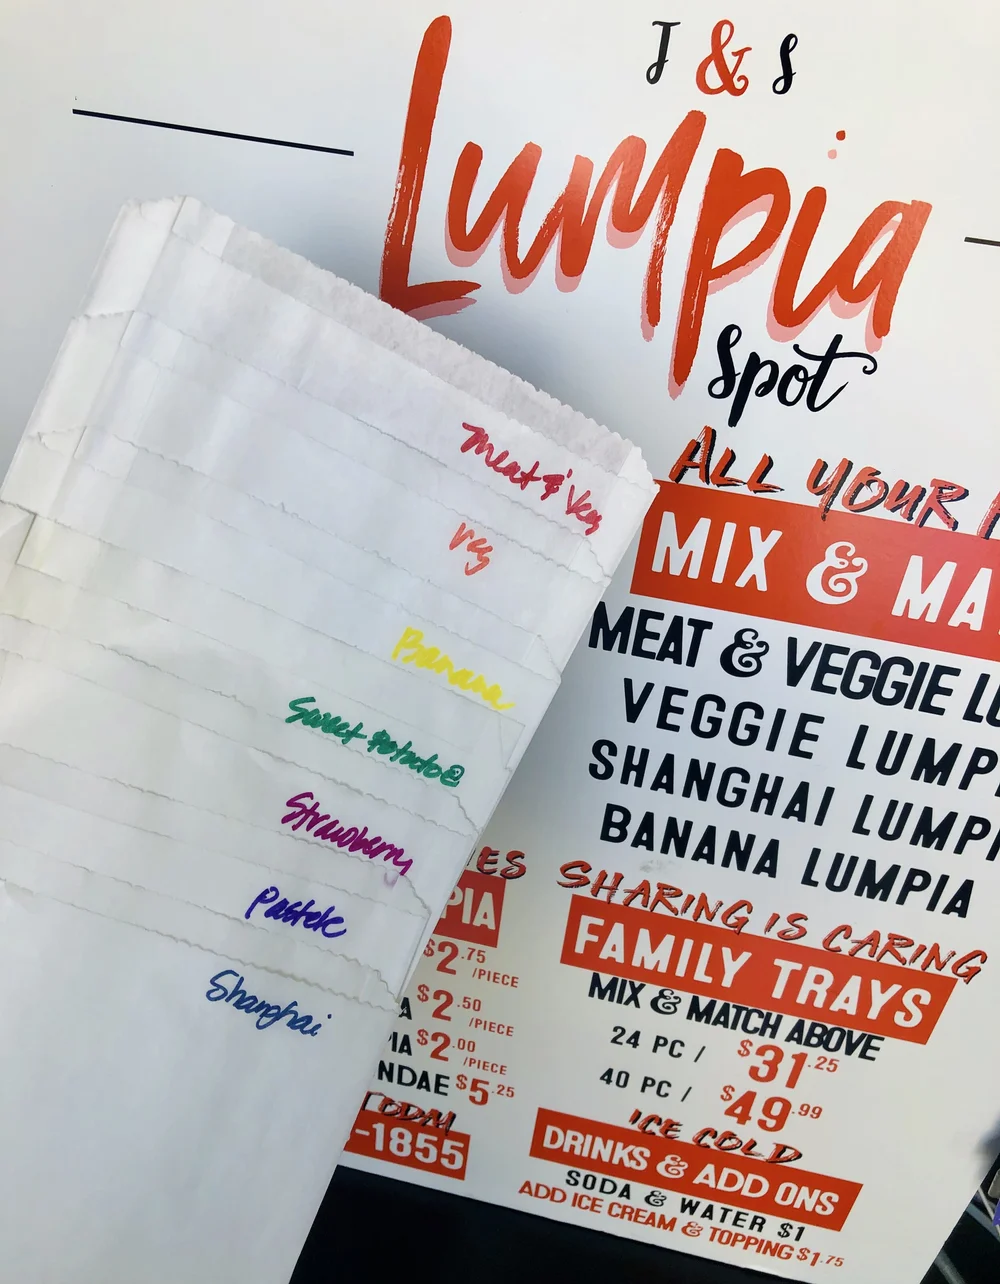 J & S
Lumpia
Spot
ALL YOUR
MIX & MA
MEAT & VEGGIE LU
VEGGIE LUMPI
SHANGHAI LUMPI
BANANA LUMPIA
SHARING IS CARING
FAMILY TRAYS
MIX & MATCH ABOVE
24 PC / $31.25
40 PC / $49.99
ICE COLD
DRINKS & ADD ONS
SODA & WATER $1
ADD ICE CREAM & TOPPING $1.75
ES
PIA
$2.75 /PIECE
A $2.50 /PIECE
IA $2.00 /PIECE
NDAE $5.25
TODAY
-1855
Meat & Veg
Veg
Banana
Sweet Potatoe
Strawberry
Pastele
Shanghai